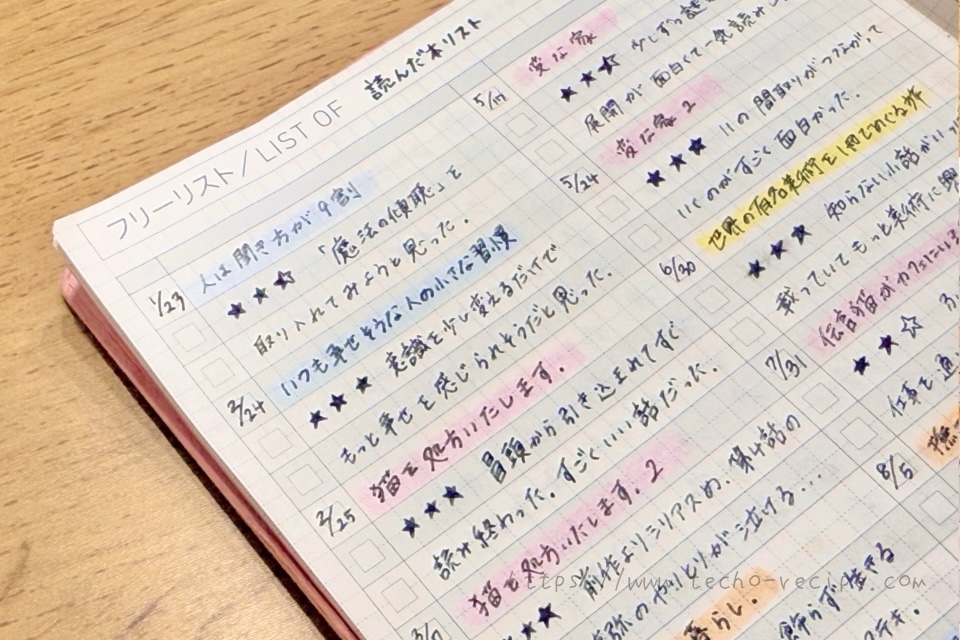 フリーリスト/LIST OF 読んだ本リスト
1/23 人は聞き方が9割
★★☆ 「魔法の傾聴」を
取り入れてみようと思った。
2/24 いつも幸せそうな人の小さな習慣
★★★ 意識を少し変えるだけで
もっと幸せを感じられそうだと思った。
2/25 猫を処方いたします。
★★★ 冒頭から引き込まれてすぐ
読み終わった。すごくいい話だった。
猫を処方いたします。2
★★ 前作よりシリアスめ。第4話の
弥のやりとりが泣ける...
暮らし。
飾らず生きる
変な家
★★★ 少しずつ
展開が面白くて一気読み
変な家2
5/24 ★★★ 11の間取りがつながって
いくのがすごく面白かった。
6/30 世界の有名美術を1冊でめぐる旅
★★★ 知らない小話がいっ
載っていてもっと美術に興
7/31 伝言猫がカフェにいま
★★☆
仕事を通
8/5
https://www.techo-recipe.com